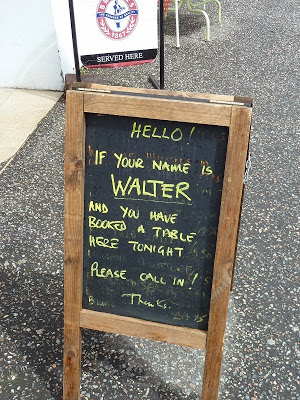 1867
SERVED HERE
HELLO!
IF YOUR NAME IS
WALTER
AND YOU HAVE
BOOKED A TABLE
HERE TONIGHT
PLEASE CALL IN!
Thanks.